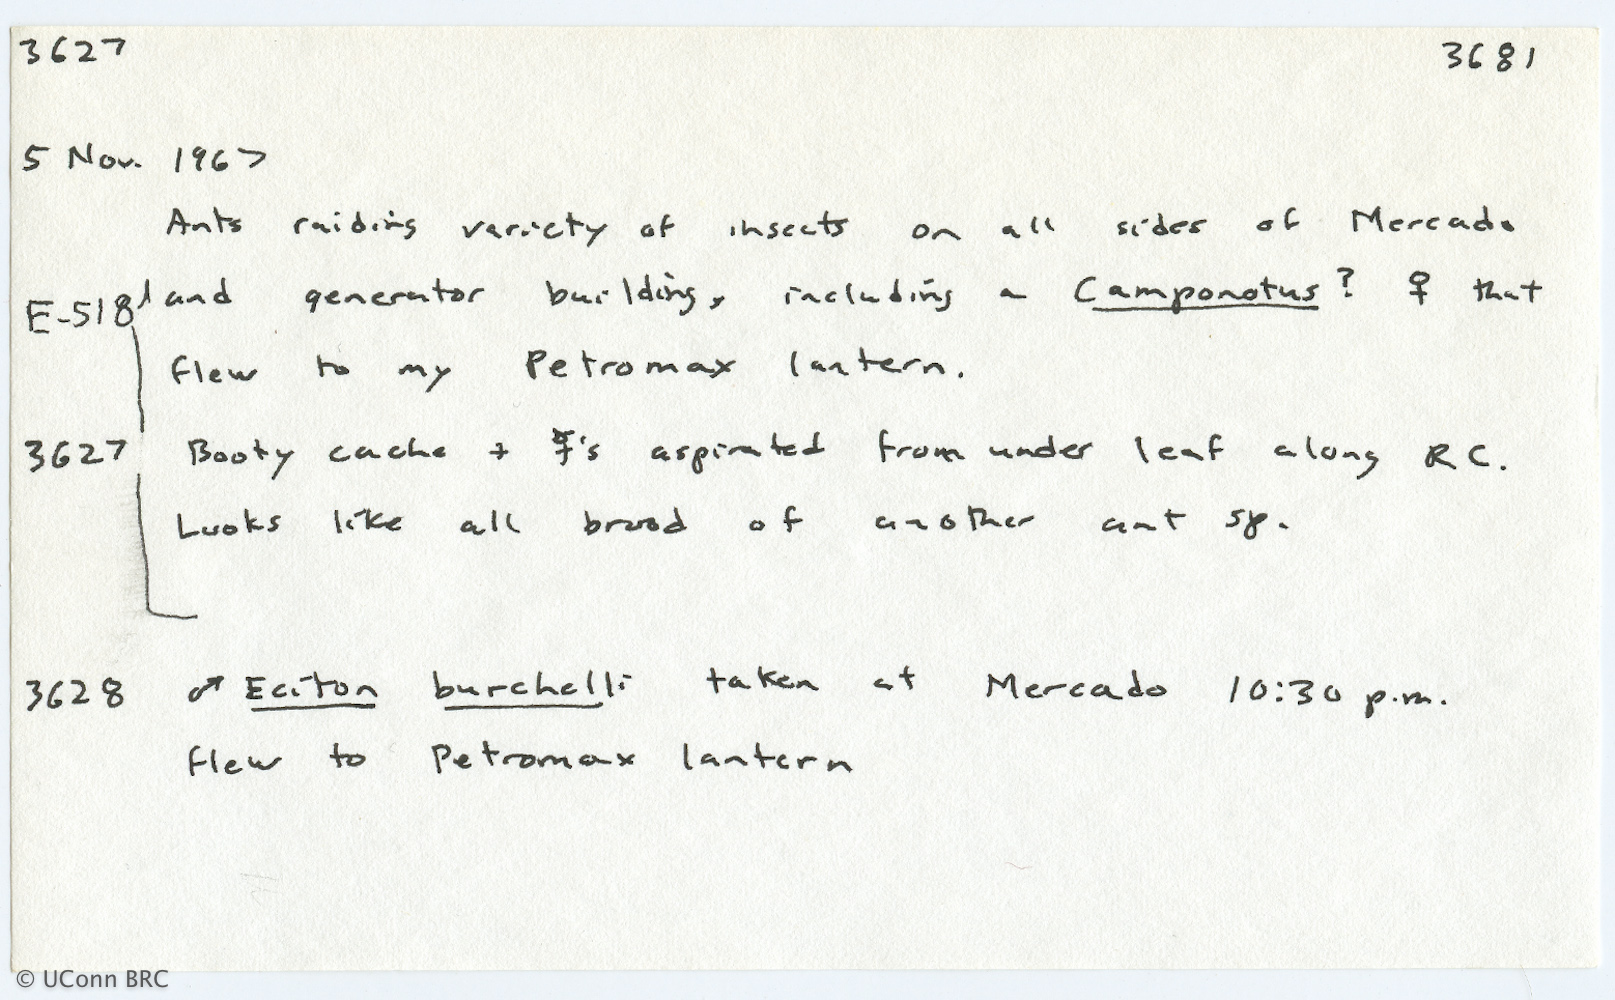 3627 3681
5 Nov. 1967
Ants raiding variety of insects on all sides of Mercado
E-518 and generator building, including a Camponotus? ♀ that
flew to my Petromax lantern.
3627 Booty cache + ☿'s aspirated from under leaf along RC.
Looks like all brood of another ant sp.
3628 ♂ Eciton burchelli taken at Mercado 10:30 p.m.
flew to Petromax lantern
© UConn BRC